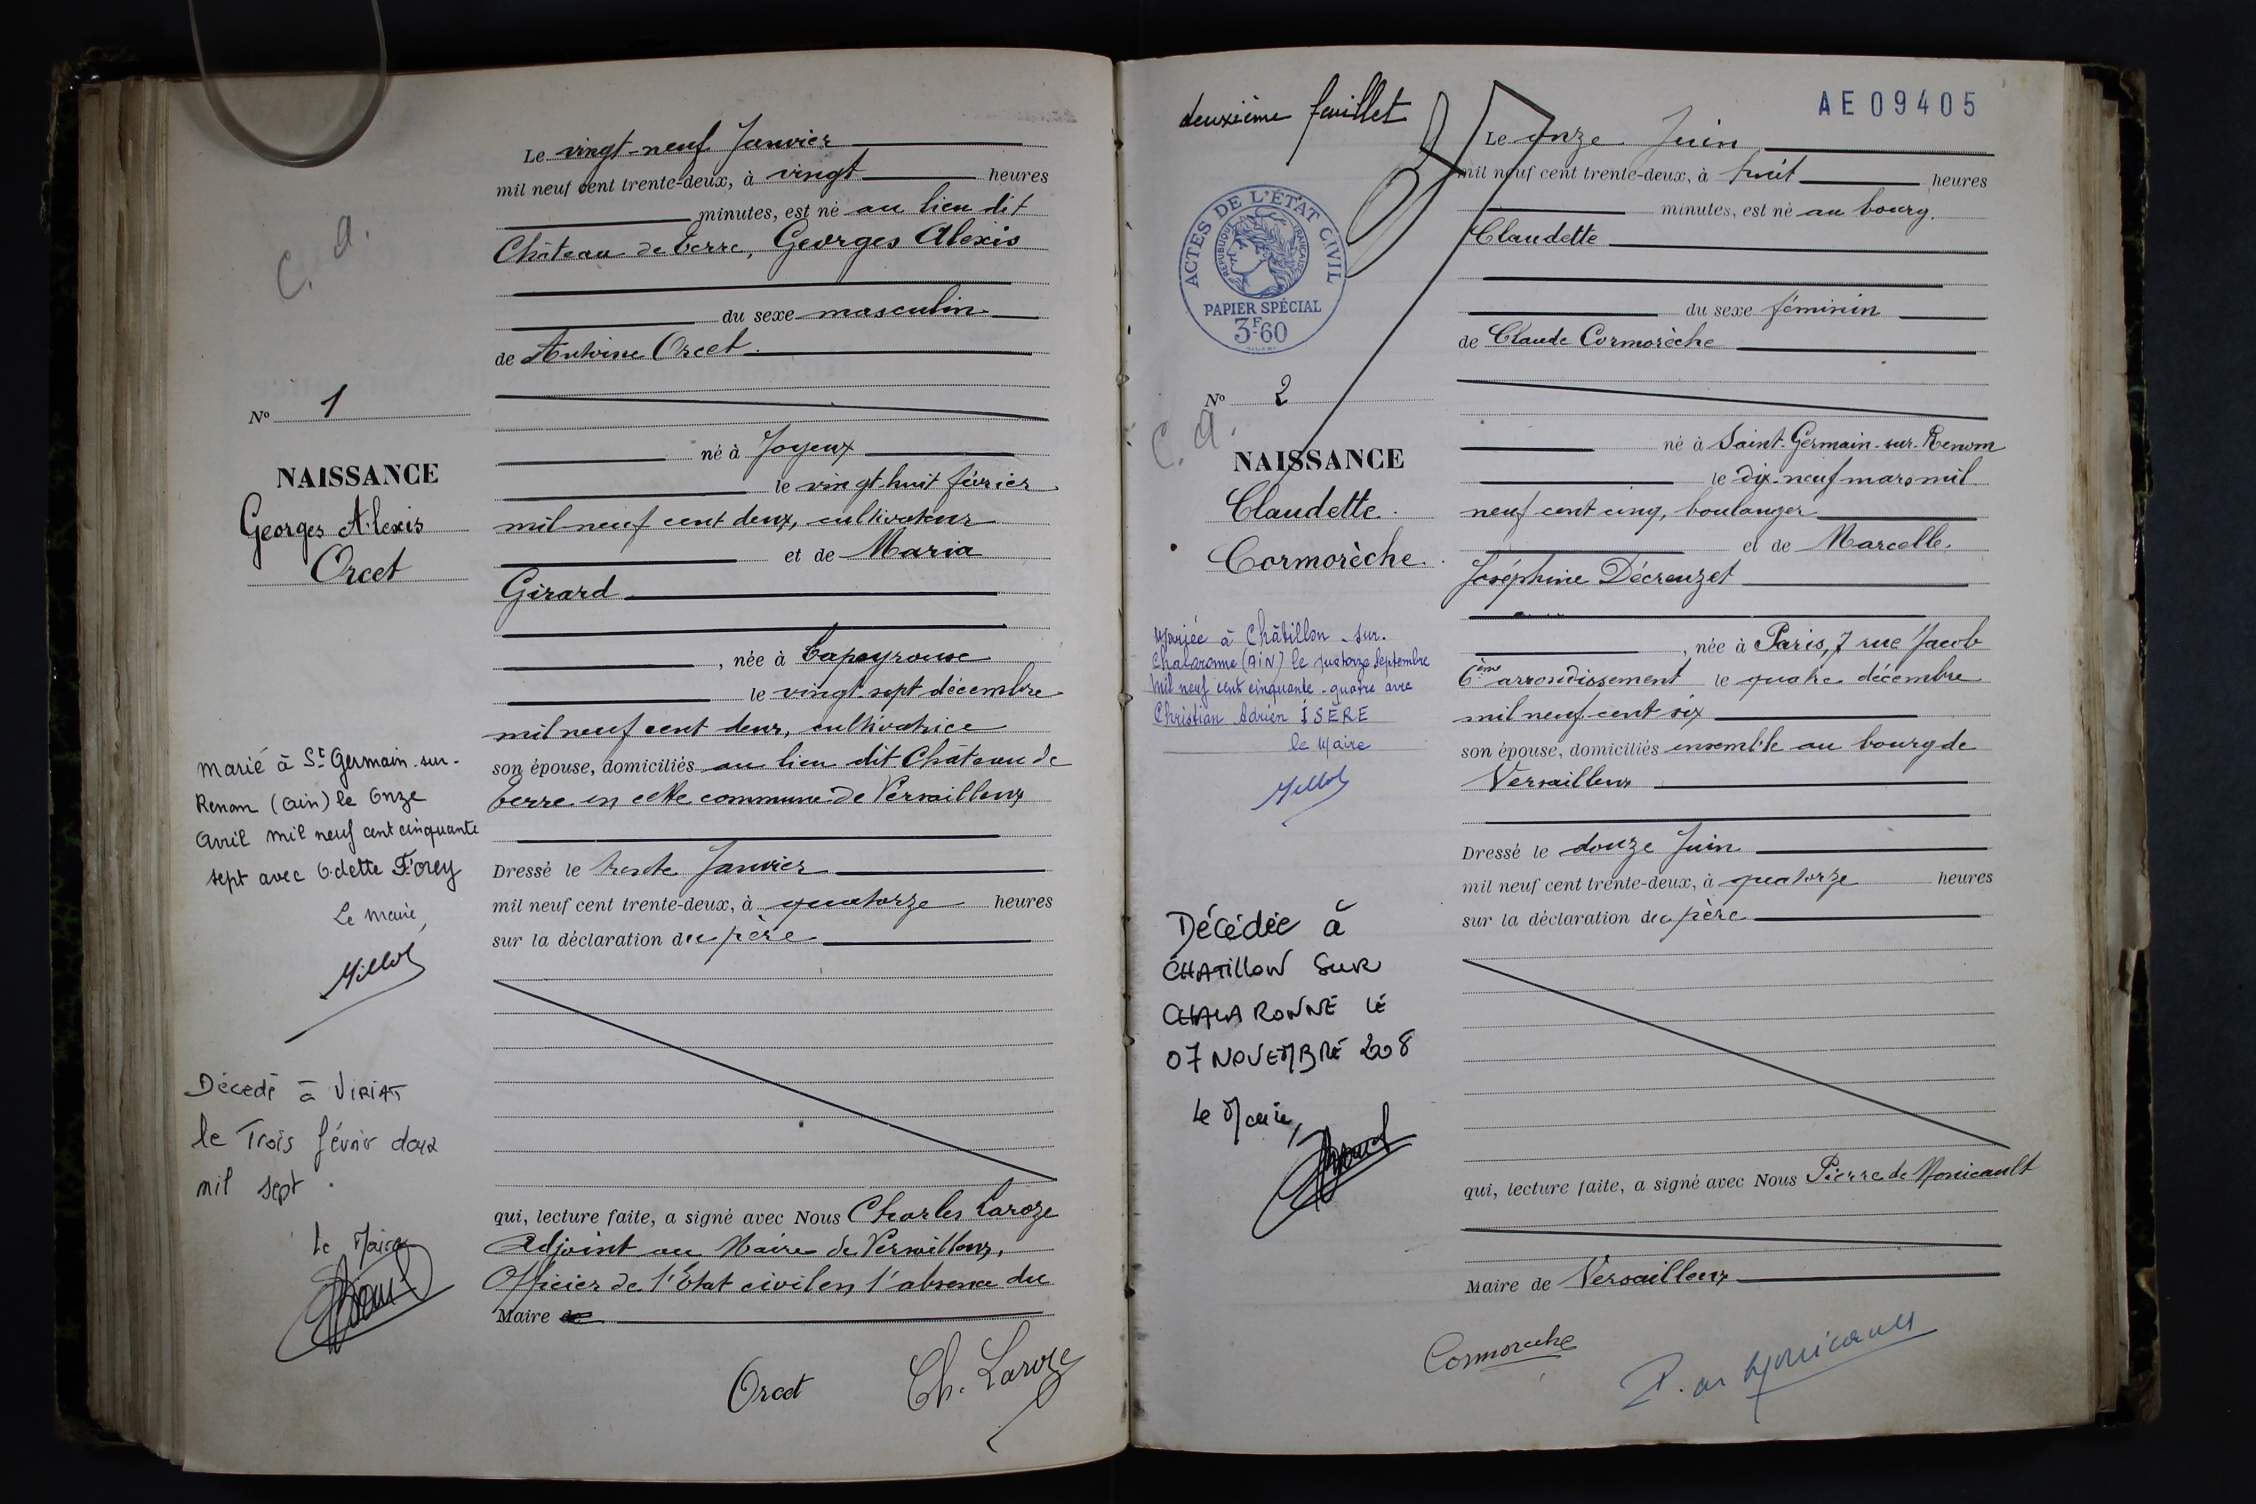 C. A.
N° 1
NAISSANCE
Georges Alexis
Orcet
Marié à St Germain-sur-
Renom (Ain) le Onze
Avril mil neuf cent cinquante
sept avec Odette Forey
Le Maire,
Millot
Décédé à VIRIAT
le Trois février deux
mil sept.
Le Maire
Le vingt-neuf Janvier
mil neuf cent trente-deux, à vingt heures
minutes, est né au lieu dit
Château de Terre, Georges Alexis
du sexe masculin
de Antoine Orcet.
né à Joyeux
le vingt-huit février
mil neuf cent deux, cultivateur
et de Maria
Girard
, née à Lapeyrouse
le vingt-sept décembre
mil neuf cent deux, cultivatrice
son épouse, domiciliés au lieu dit Château de
Terre en cette commune de Versailleux
Dressé le trente Janvier
mil neuf cent trente-deux, à quatorze heures
sur la déclaration du père
qui, lecture faite, a signé avec Nous Charles Laroze
Adjoint au Maire de Versailleux,
Officier de l'État civil en l'absence du
Maire de
Orcet Ch. Laroze
deuxième feuillet
AE09405
ACTES DE L'ÉTAT CIVIL
RÉPUBLIQUE FRANÇAISE
PAPIER SPÉCIAL
3F.60
N° 2
C. A.
NAISSANCE
Claudette
Cormorèche.
Mariée à Châtillon-sur-
Chalaronne (AIN) le quatorze Septembre
mil neuf cent cinquante-quatre avec
Christian Adrien ISÈRE
le Maire
Millot
Décédée à
CHATILLON SUR
CHALARONNE LE
07 NOVEMBRE 2008
Le Maire,
Le onze Juin
mil neuf cent trente-deux, à huit heures
minutes, est né au bourg.
Claudette
du sexe féminin
de Claude Cormorèche
né à Saint-Germain-sur-Renom
le dix-neuf mars mil
neuf cent cinq, boulanger
et de Marcelle.
Joséphine Décrouzet
, née à Paris, 7 rue Jacob
6ème arrondissement le quatre décembre
mil neuf cent six
son épouse, domiciliés ensemble au bourg de
Versailleux
Dressé le douze Juin
mil neuf cent trente-deux, à quatorze heures
sur la déclaration du père
qui, lecture faite, a signé avec Nous Pierre de Monicault
Maire de Versailleux
Cormorèche
P. de Monicault